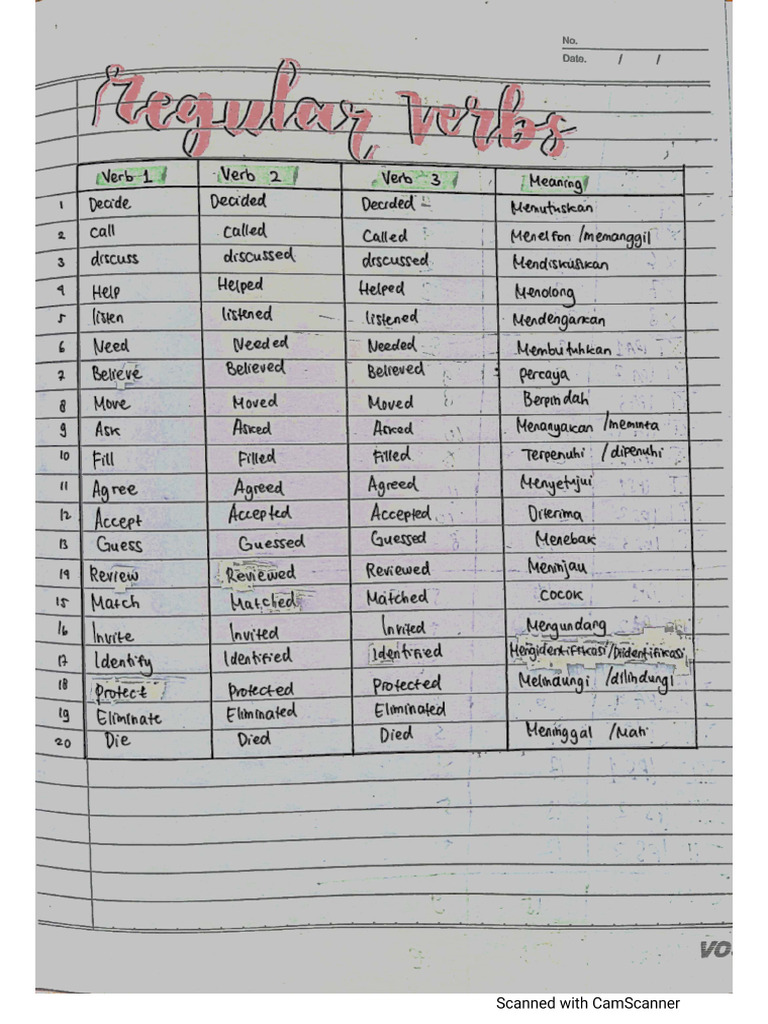 No.
Date. / /
Regular Verbs
Verb 1 Verb 2 Verb 3 Meaning
1 Decide Decided Decided Memutuskan
2 call called Called Menelfon /memanggil
3 discuss discussed discussed Mendiskusikan
4 Help Helped Helped Menolong
5 listen listened listened Mendengarkan
6 Need Needed Needed Membutuhkan
7 Believe Believed Believed percaya
8 Move Moved Moved Berpindah
9 Ask Asked Asked Menanyakan /meminta
10 Fill Filled Filled Terpenuhi /dipenuhi
11 Agree Agreed Agreed Menyetujui
12 Accept Accepted Accepted Diterima
13 Guess Guessed Guessed Menebak
14 Review Reviewed Reviewed Meninjau
15 Match Matched Matched cocok
16 Invite Invited Invited Mengundang
17 Identify Identified Identified Mengidentifikasi/Diidentifikasi
18 Protect Protected Protected Melindungi /dilindungi
19 Eliminate Eliminated Eliminated
20 Die Died Died Meninggal /Mati
Scanned with CamScanner